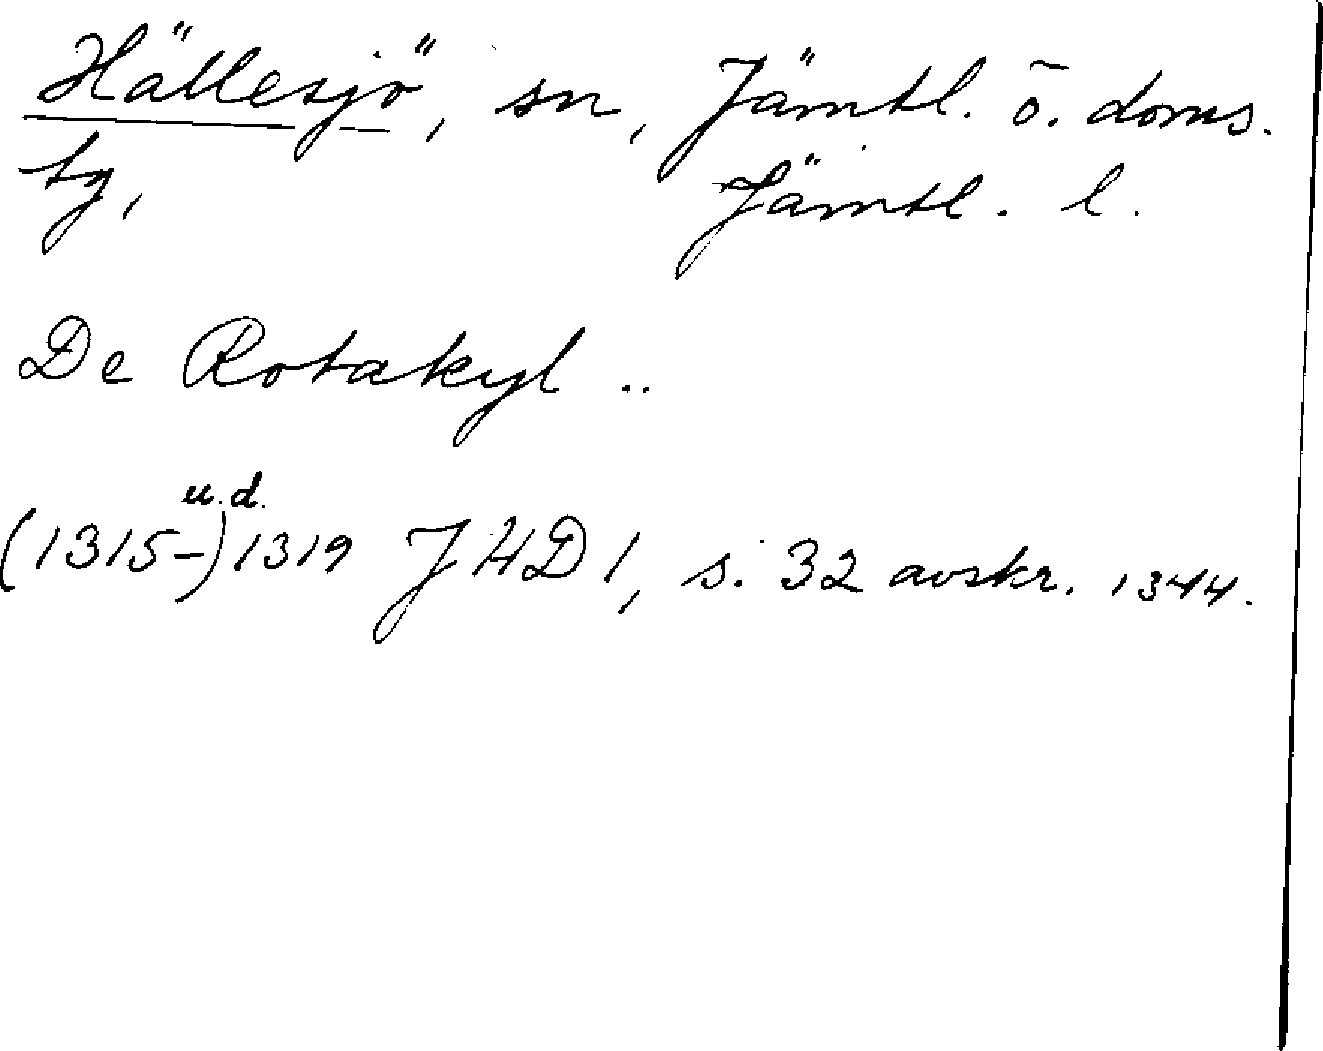 Hällesjö, sn, Jämtl. ö. doms.
tg, Jämtl. l.
De Rotakyl ..
u.d.
(1315-) 1319 JHD 1, s. 32 avskr. 1344.